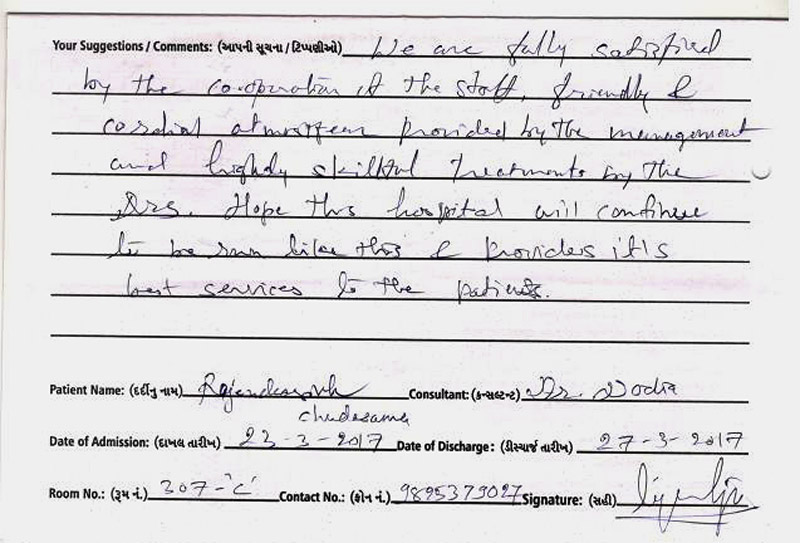 Your Suggestions / Comments: (આપની સૂચના / ટિપ્પણીઓ) We are fully satisfied
by the co.operation of the staff, friendly &
cordial atmosfear provided by the management
and highly skillful treatments by the
Drs. Hope this hospital will continue
to be run like this & providers it's
best services to the patients.
Patient Name: (દર્દીનું નામ) Consultant: (કન્સલ્ટન્ટ) Dr. Vodia
chudasama
Date of Admission: (દાખલ તારીખ) 23-3-2017 Date of Discharge: (ડીસ્ચાર્જ તારીખ) 27-3-2017
Room No.: (રૂમ નં.) 307-'C' Contact No.: (ફોન નં.) 9895379027 Signature: (સહી)